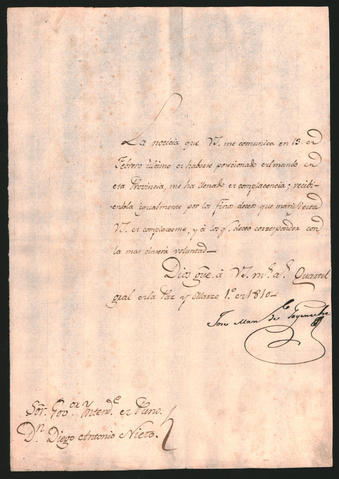 La noticia que V. me comunica en 13 de
Febrero ultimo de haberse posesionado del mando de
esa Provincia, me ha llenado de complacencia; recibi-
endola igualmente por los finos deseos que manifiesta
V. de complacerme, y á los q.e deseo corresponder con
la mas sincera voluntad.
Dios gue. á V. m.s a.s Quartel
gral de la Paz y Marzo 1.o de 1810
Jose Man.l de Goyeneche
Sor. Gov.or Yntend.e de Puno.
Dn. Diego Antonio Nieto.